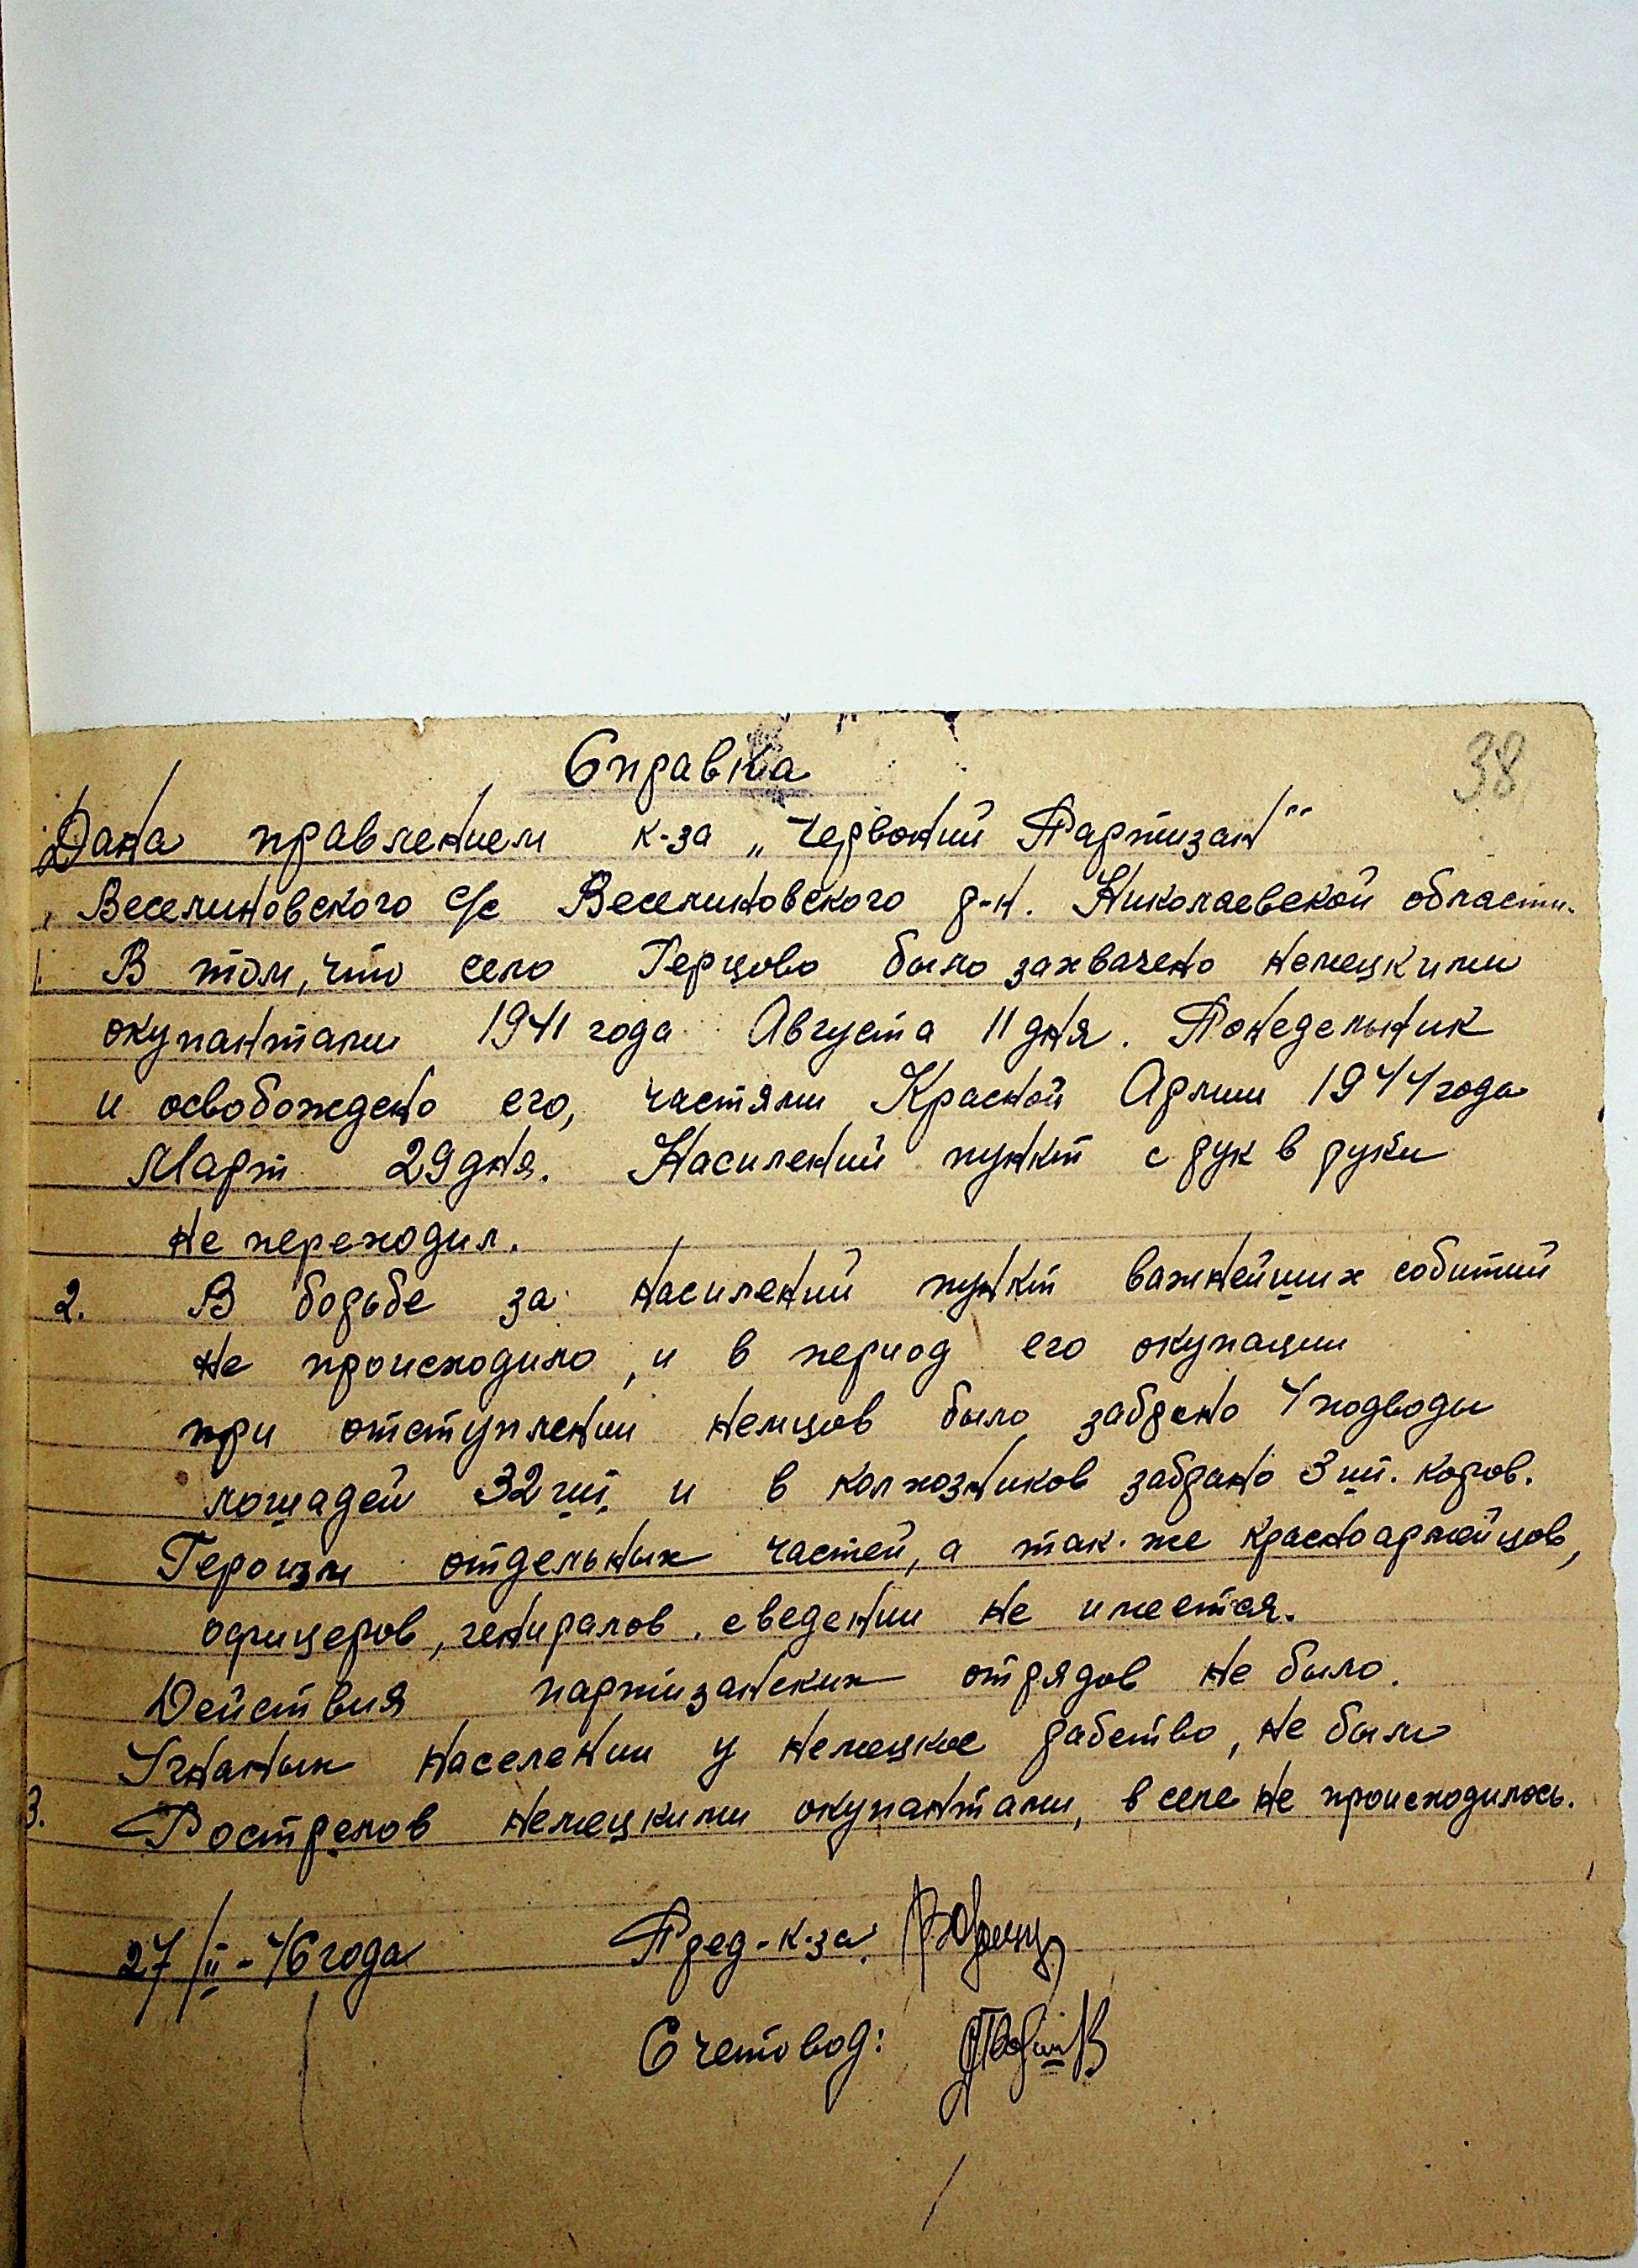 38
Справка
Дана правлением к-за „Червоний Партизан"
Веселиновского с/с Веселиновского р-н. Николаевской области.
1. В том, что село Герцово было захвачено немецкими
окупантами 1941 года Августа 11 дня. Понедельник
и освобождено его, частями Красной Армии 1944 года
Март 29 дня. Насиленый пункт с рук в руки
не переходил.
2. В борьбе за насиленый пункт важнейших событий
не происходило, и в период его окупации
при отступлении немцов было забрано 4 подводы
лошадей 32 шт. и в колхозников забрано 3 шт. коров.
Героизм отдельных частей, а так-же красноармейцов,
офицеров, гениралов. сведении не имеется.
Действия партизанских отрядов не было.
Угнаных населении у немецкое рабство, не были
3. Рострелов немецкими окупантами, в селе не происходилось.
27/II-46 года Пред-к-за
Счетовод: